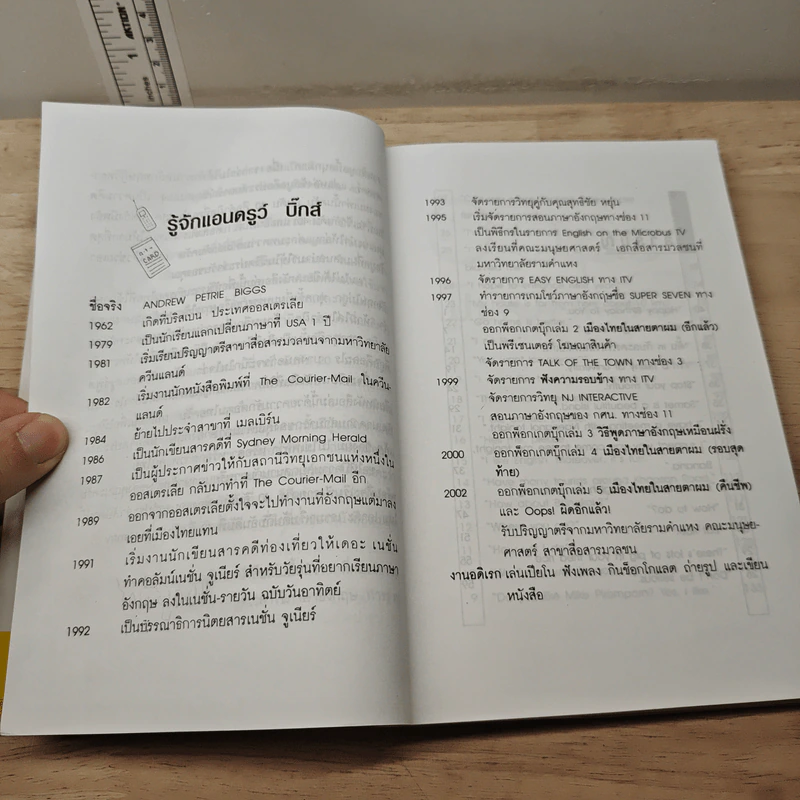 รู้จักแอนดรูว์ บิ๊กส์
CARD
ชื่อจริง ANDREW PETRIE BIGGS
1962 เกิดที่บริสเบน ประเทศออสเตรเลีย
1979 เป็นนักเรียนแลกเปลี่ยนภาษาที่ USA 1 ปี
1981 เริ่มเรียนปริญญาตรีสาขาสื่อสารมวลชนจากมหาวิทยาลัย
ควีนแลนด์
1982 เริ่มงานนักหนังสือพิมพ์ที่ The Courier-Mail ในควีน-
แลนด์
1984 ย้ายไปประจำสาขาที่ เมลเบิร์น
1986 เป็นนักเขียนสารคดีที่ Sydney Morning Herald
1987 เป็นผู้ประกาศข่าวให้กับสถานีวิทยุเอกชนแห่งหนึ่งใน
ออสเตรเลีย กลับมาทำที่ The Courier-Mail อีก
1989 ออกจากออสเตรเลียตั้งใจจะไปทำงานที่อังกฤษแต่มาลง
เอยที่เมืองไทยแทน
1991 เริ่มงานนักเขียนสารคดีท่องเที่ยวให้เดอะ เนชั่น
ทำคอลัมน์เนชั่น จูเนียร์ สำหรับวัยรุ่นที่อยากเรียนภาษา
อังกฤษ ลงในเนชั่น-รายวัน ฉบับวันอาทิตย์
1992 เป็นบรรณาธิการนิตยสารเนชั่น จูเนียร์
1993 จัดรายการวิทยุคู่กับคุณสุทธิชัย หยุ่น
1995 เริ่มจัดรายการสอนภาษาอังกฤษทางช่อง 11
เป็นพิธีกรในรายการ English on the Microbus TV
ลงเรียนที่คณะมนุษยศาสตร์ เอกสื่อสารมวลชนที่
มหาวิทยาลัยรามคำแหง
1996 จัดรายการ EASY ENGLISH ทาง ITV
1997 ทำรายการเกมโชว์ภาษาอังกฤษชื่อ SUPER SEVEN ทาง
ช่อง 9
ออกพ็อกเกตบุ๊กเล่ม 2 เมืองไทยในสายตาผม (อีกแล้ว)
เป็นพรีเซนเตอร์ โฆษณาสินค้า
จัดรายการ TALK OF THE TOWN ทางช่อง 3
1999 จัดรายการ ฟังความรอบข้าง ทาง ITV
จัดรายการวิทยุ NJ INTERACTIVE
สอนภาษาอังกฤษของ กศน. ทางช่อง 11
ออกพ็อกเกตบุ๊กเล่ม 3 วิธีพูดภาษาอังกฤษเหมือนฝรั่ง
2000 ออกพ็อกเกตบุ๊กเล่ม 4 เมืองไทยในสายตาผม (รอบสุด
ท้าย)
2002 ออกพ็อกเกตบุ๊กเล่ม 5 เมืองไทยในสายตาผม (คืนชีพ)
และ Oops! ผิดอีกแล้ว!
รับปริญญาตรีจากมหาวิทยาลัยรามคำแหง คณะมนุษย-
ศาสตร์ สาขาสื่อสารมวลชน
งานอดิเรก เล่นเปียโน ฟังเพลง กินช็อกโกแลต ถ่ายรูป และเขียน
หนังสือ